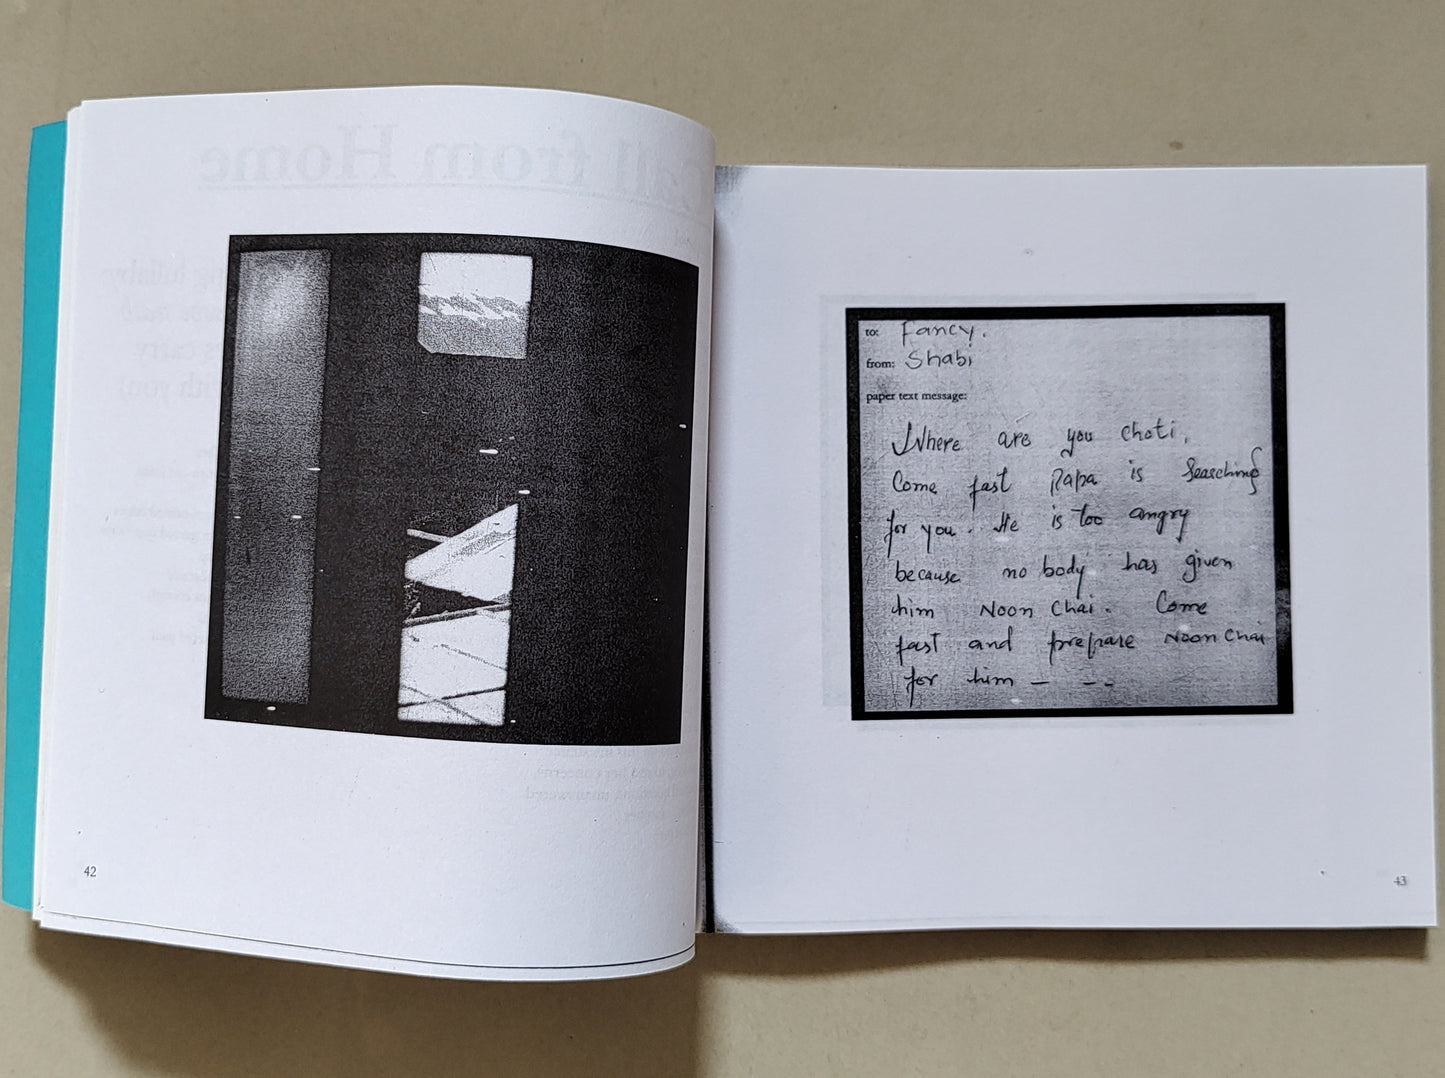 42
to: Fancy.
from: Shabi
paper text message:
Where are you choti.
Come fast Papa is Searching
for you. He is too angry
because no body has given
him Noon Chai. Come
fast and prepare Noon Chai
for him — - -
43